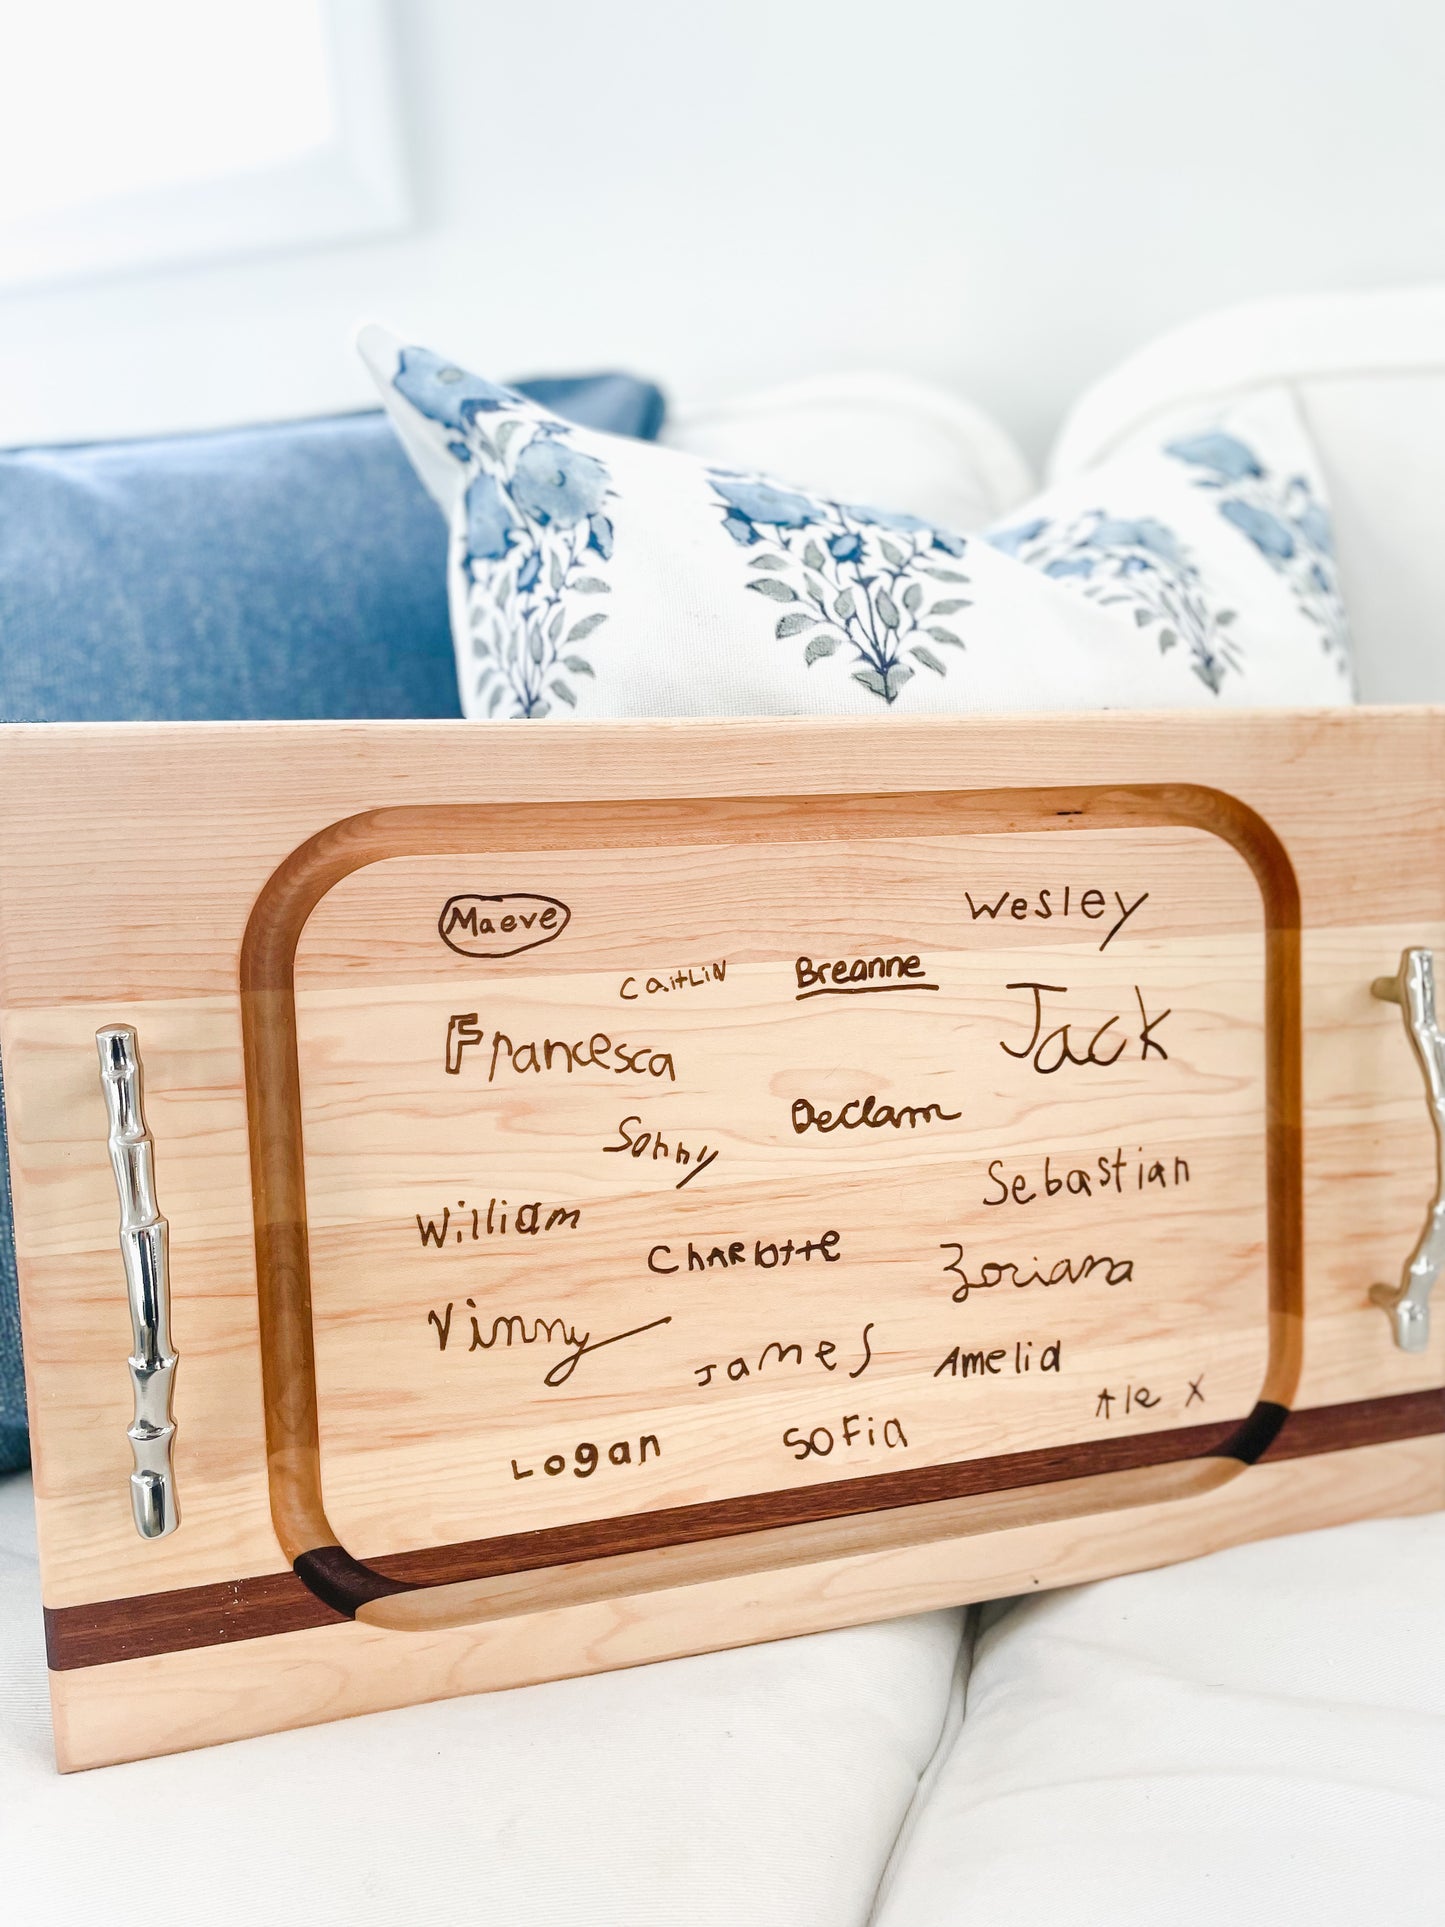 Maeve
Wesley
CaitLiN
Breanne
Francesca
Jack
Sonny
Declam
William
Sebastian
ChARlottE
Zoriana
Vinny
James
Amelia
Alex
Logan
SoFia